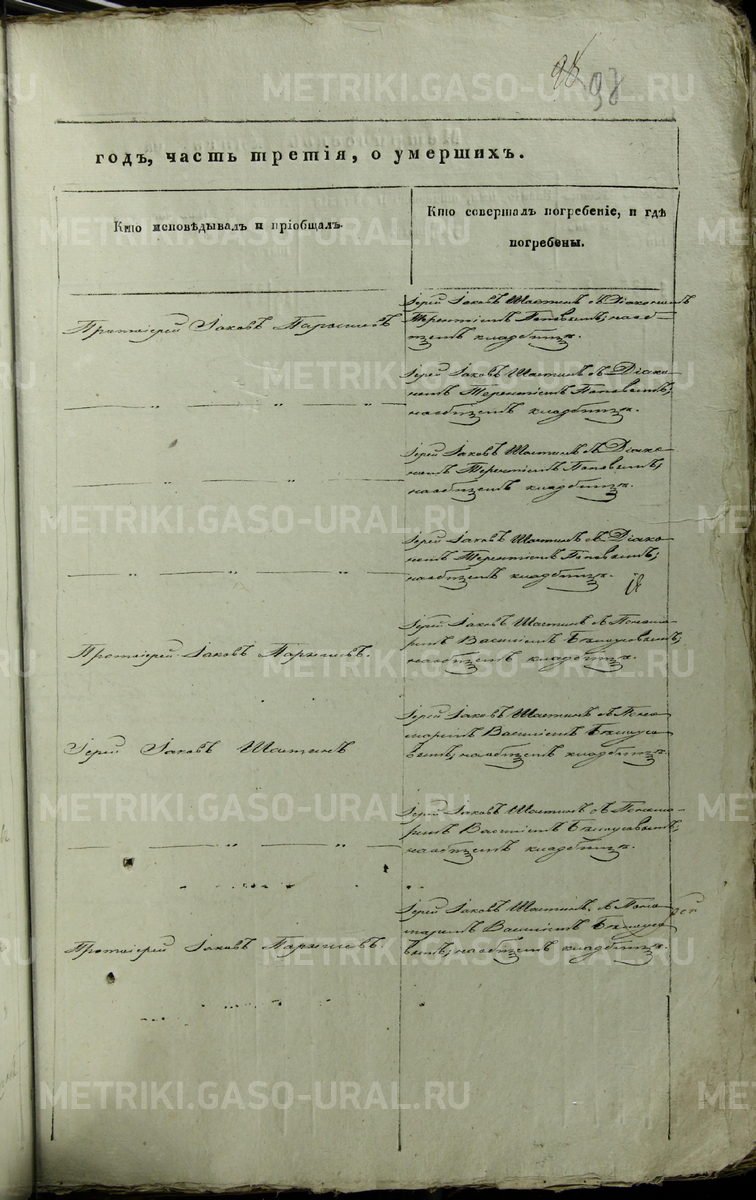 98
98
METRIKI.GASO-URAL.RU
годъ, часть третія, о умершихъ.
Кто исповѣдывалъ и пріобщалъ.
Кто совершалъ погребеніе, и гдѣ
погребены.
Протоіерей Іаковъ
Іерей Іаковъ Шастинъ съ Діакономъ
Терентіемъ Поповымъ; на об-
щемъ кладбищѣ.
— „ — „ —
Іерей Іаковъ Шастинъ съ Діако-
номъ Терентіемъ Поповымъ;
на общемъ кладбищѣ.
Іерей Іаковъ Шастинъ съ Діако-
номъ Терентіемъ Поповымъ;
на общемъ кладбищѣ.
— „ — „ —
Іерей Іаковъ Шастинъ съ Діако-
номъ Терентіемъ Поповымъ;
на общемъ кладбищѣ.
Протоіерей Іаковъ
Іерей Іаковъ Шастинъ съ Понома-
ремъ Василіемъ
на общемъ кладбищѣ.
Іерей Іаковъ Шастинъ
Іерей Іаковъ Шастинъ съ Поно-
маремъ Василіемъ
на общемъ кладбищѣ.
— „ — „ —
Іерей Іаковъ Шастинъ съ Понома-
ремъ Василіемъ
на общемъ кладбищѣ.
Протоіерей Іаковъ
Іерей Іаковъ Шастинъ съ Поно-
маремъ Василіемъ
на общемъ кладбищѣ.